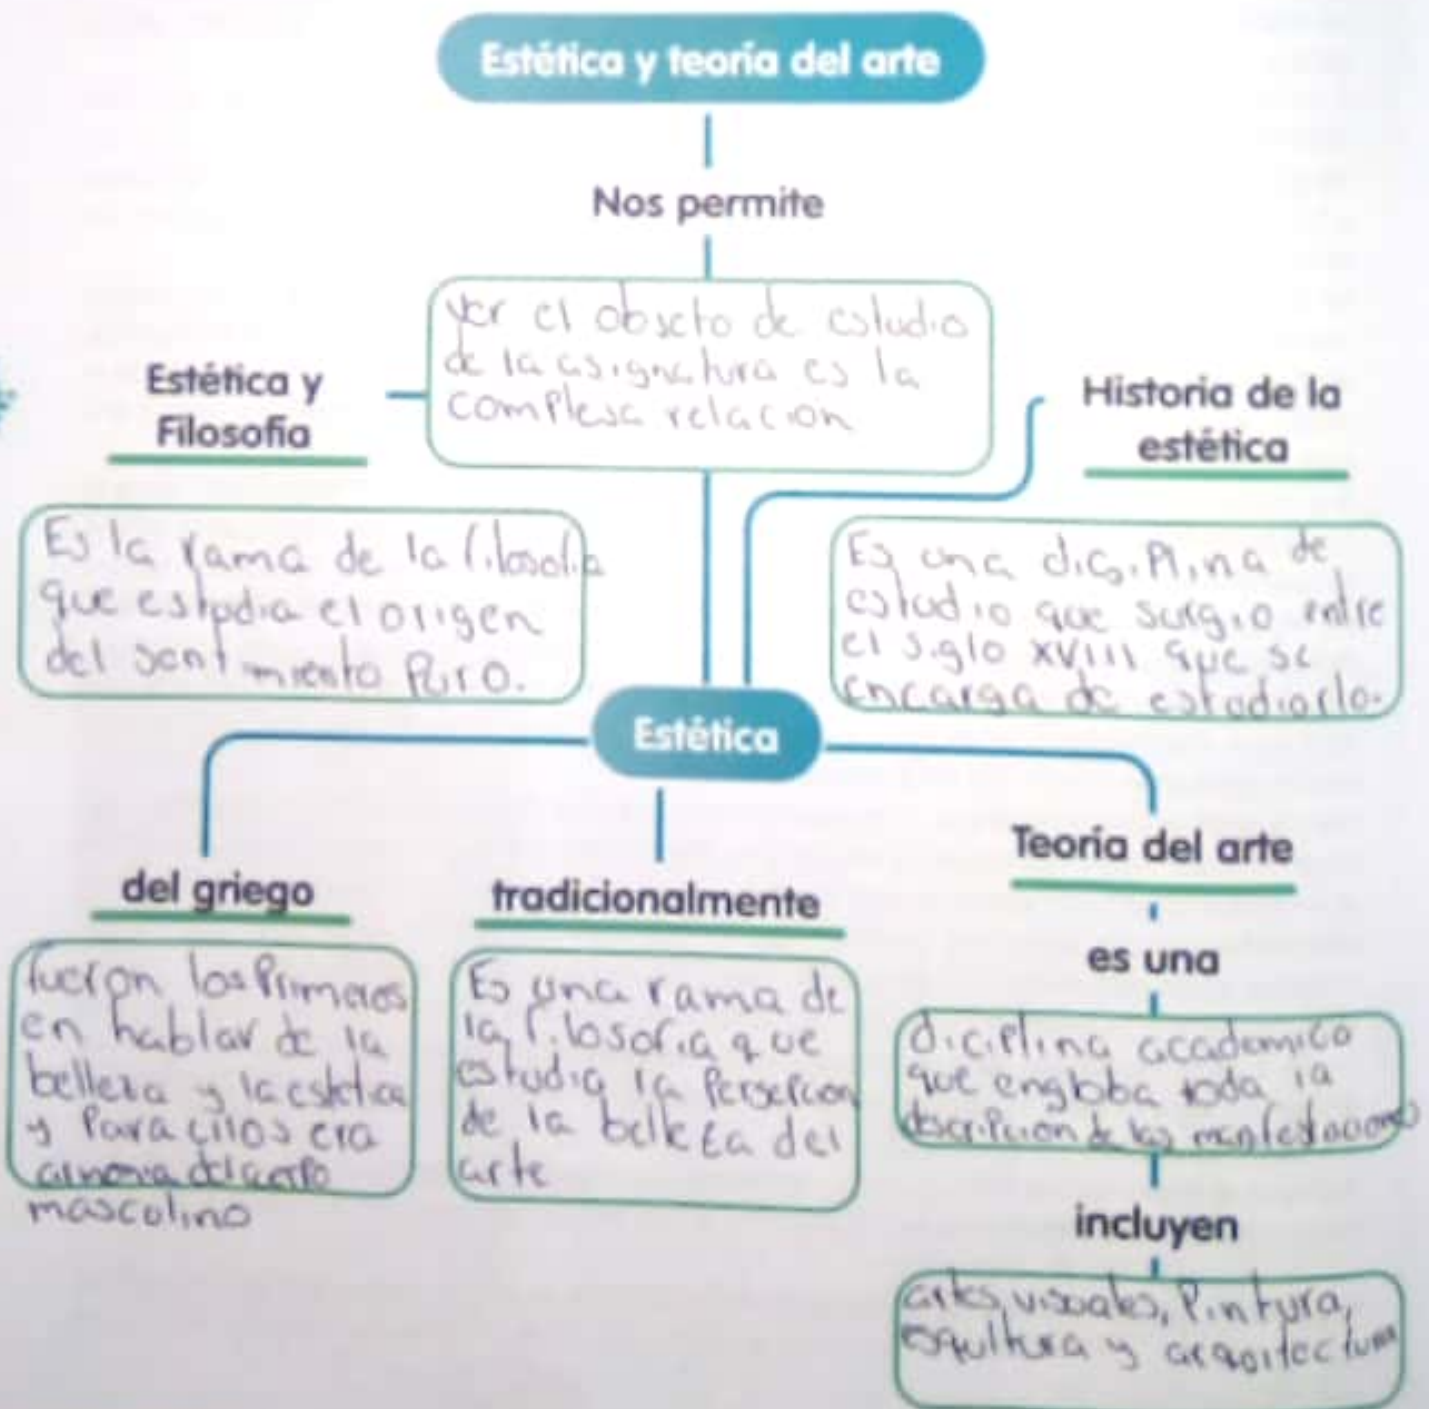 Estética y teoría del arte
Nos permite
ver el obseto de estudio
de la asignatura es la
complesa relacion
Estética y
Filosofía
Es la rama de la filosofia
que estudia el origen
del sentimiento Puro.
Historia de la
estética
Es una diciplina de
estudio que surgio entre
el siglo XVIII que se
encarga de estudiarlo.
Estética
del griego
fueron los Primeros
en hablar de la
belleza y la estetica
y Para ellos era
armonia del cuerpo
mascolino
tradicionalmente
Es una rama de
la filosofia que
estudia la Persepcion
de la belleza del
arte
Teoría del arte
es una
diciplina academica
que engloba toda la
descripcion de las manifestaciones
incluyen
artes visuales, Pintura,
esqultura y arquitectura